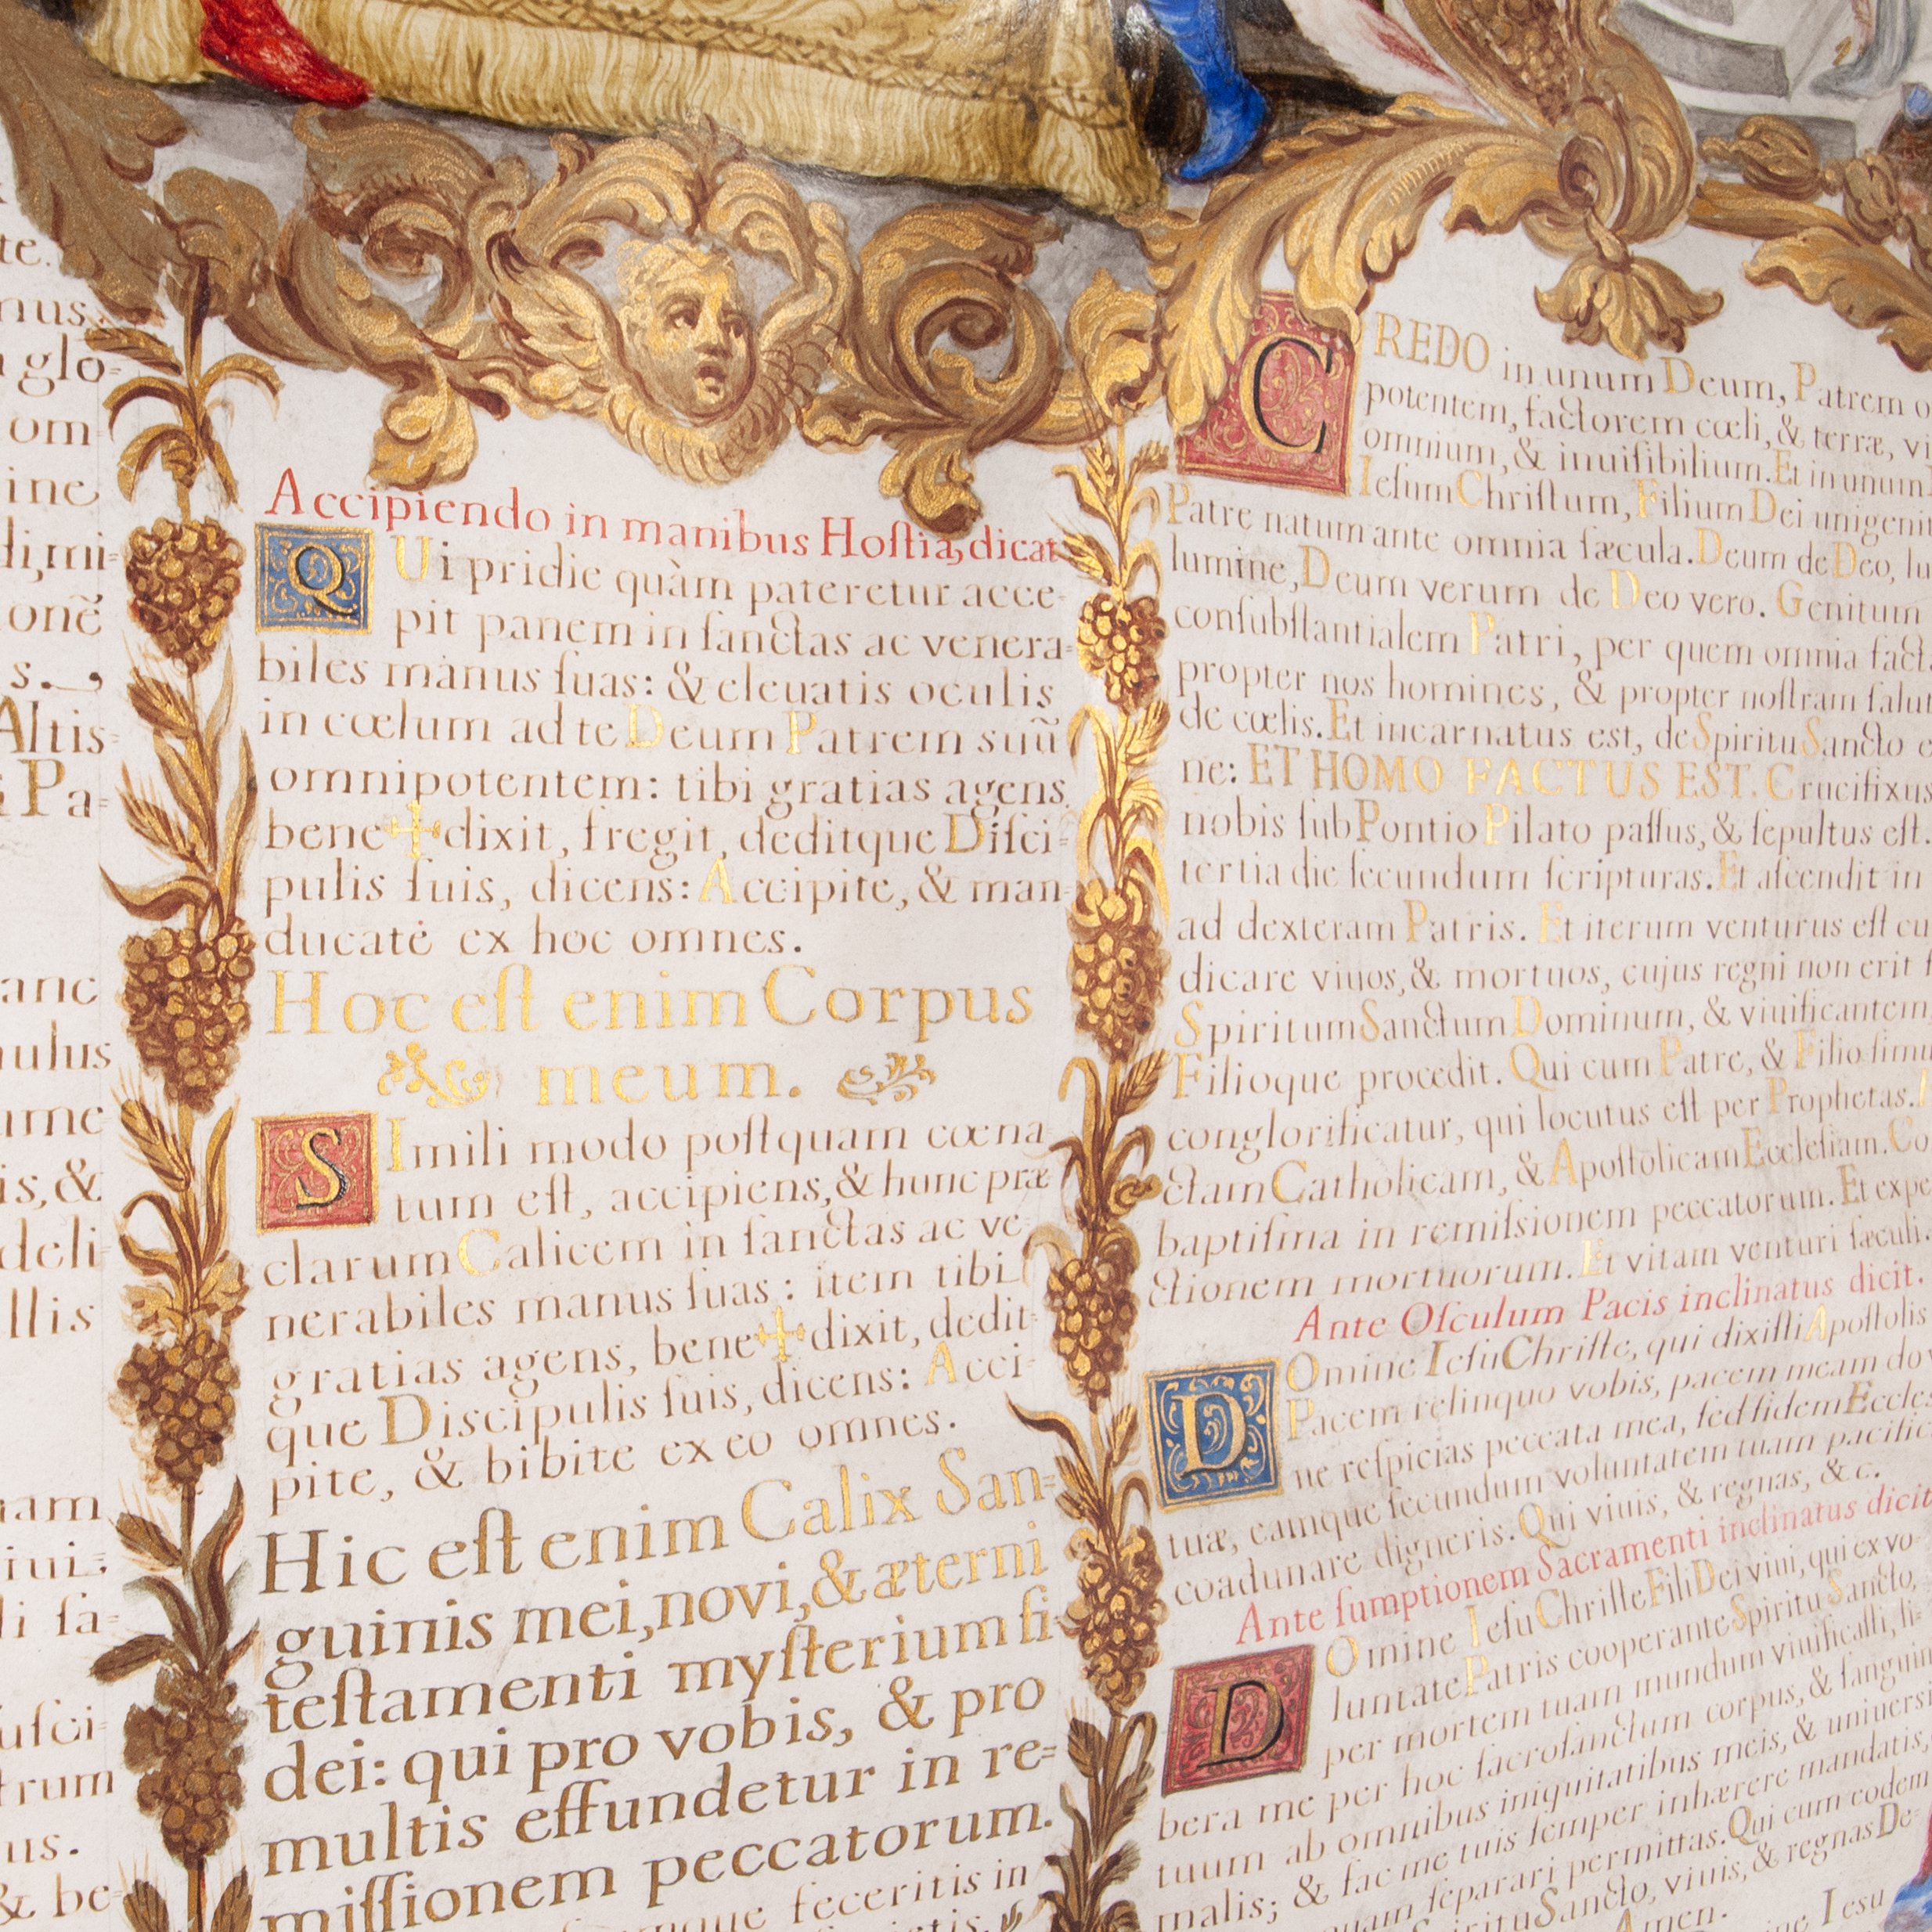 te.
nus
glo-
om
ine
dimi-
onẽ
s.
Altis-
i Pa-
anc
ulus
ume
is, &
deli-
llis
uam
iui-
li ſa-
uſci-
trum
us.
& be-
Accipiendo in manibus Hoſtiã, dicat
QUi pridie quàm pateretur acce-
pit panem in ſanctas ac venera-
biles mànus ſuas: & eleuatis oculis
in cœlum ad te Deum Patrem suũ
omnipotentem: tibi gratias agens,
bene✝dixit, fregit, deditque Diſci-
pulis ſuis, dicens: Accipite, & man-
ducate ex hoc omnes.
Hoc eſt enim Corpus
meum.
SImili modo poſtquam cœna-
tum eſt, accipiens, & hunc præ
clarum Calicem in ſanctas ac ve-
nerabiles manus ſuas: item tibi
gratias agens, bene✝dixit, dedit-
que Discipulis ſuis, dicens: Acci-
pite, & bibite ex eo omnes.
Hic eſt enim Calix San-
guinis mei, novi, & æterni
teſtamenti myſterium fi-
dei: qui pro vobis, & pro
multis effundetur in re-
miſſionem peccatorum.
feceritis in
CREDO in unum Deum, Patrem o
potentem, factorem cœli, & terræ, vi
omnium, & inuiſibilium. Et in unum
Ieſum Chriſtum, Filium Dei unigeni
Patre natum ante omnia ſæcula. Deum de Deo, lu
lumine, Deum verum de Deo vero. Genitum
conſubſtantialem Patri, per quem omnia fact
propter nos homines, & propter noſtram ſalut
de cœlis. Et incarnatus est, de Spiritu Sancto e
ne: ET HOMO FACTUS EST. Crucifixus
nobis ſub Pontio Pilato paſſus, & ſepultus eſt.
tertia die ſecundum ſcripturas. Et aſcendit in
ad dexteram Patris. Et iterum venturus eſt cu
dicare viuos, & mortuos, cujus regni non erit f
Spiritum Sanctum Dominum, & viuificantem,
Filioque procedit. Qui cum Patre, & Filio ſimu
conglorificatur, qui locutus eſt per Prophetas.
ctam Catholicam, & Apoſtolicam Eccleſiam. Co
baptiſma in remiſsionem peccatorum. Et expe
ctionem mortuorum. Et vitam venturi ſæculi.
Ante Oſculum Pacis inclinatus dicit.
DOmine Ieſu Chriſte, qui dixiſti Apoſtolis
Pacem relinquo vobis, pacem meam do v
ne reſpicias peccata mea, ſed fidem Eccle
tuæ, eamque ſecundum voluntatem tuam pacific
coadunare digneris: Qui viuis, & regnas, & c.
Ante ſumptionem Sacramenti inclinatus dicit
DOmine Ieſu Chriſte Fili Dei viui, qui ex vo-
luntate Patris cooperante Spiritu Sancto,
per mortem tuam mundum viuificaſti, li-
bera me per hoc ſacroſanctum corpus, & ſanguin
tuum ab omnibus iniquitatibus meis, & uniuers
malis; & fac me tuis ſemper inhærere mandatis,
ſeparari permittas. Qui cum eodem
Spiritu Sancto, viuis, & regnas De-
Amen.
Iesu